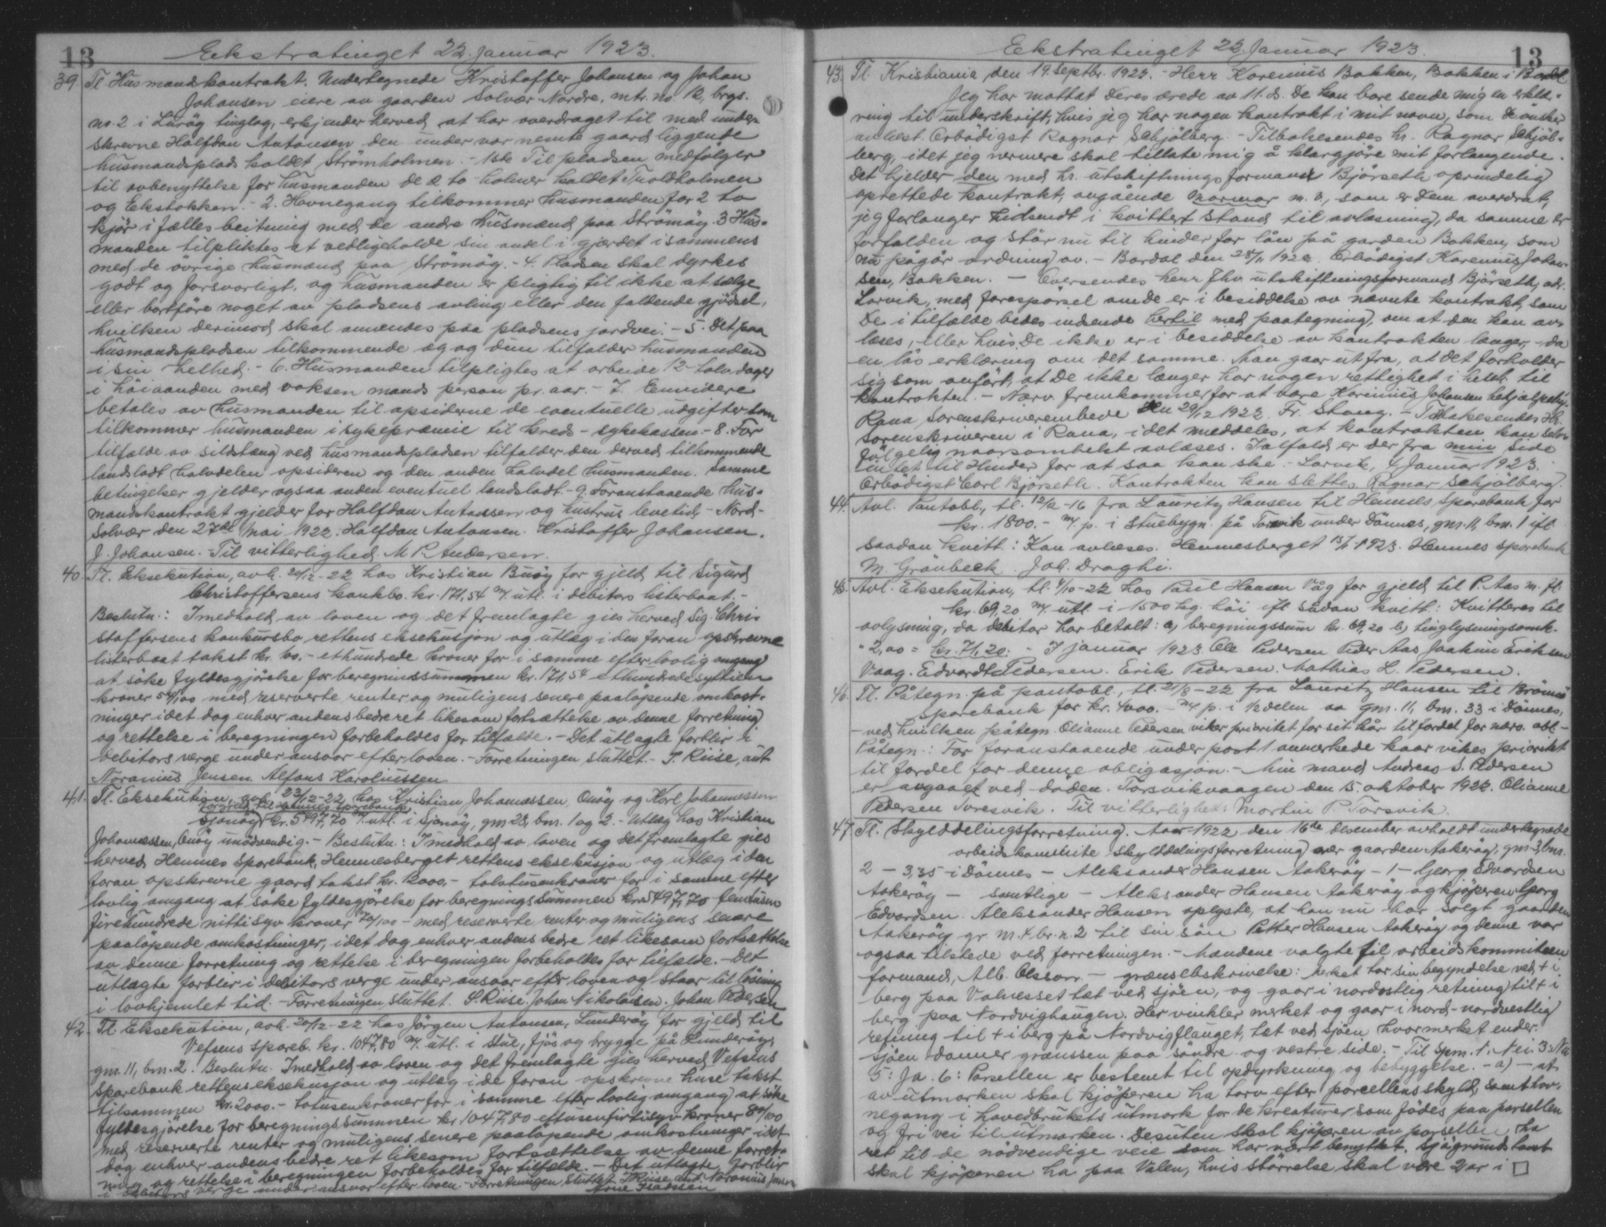 13
Ekstratinget 22. januar 1923.
39 Tl. Husmandskontrakt. Undertegnede Kristoffer Johansen og Johan
Johansen eiere av gaarden Solvær Nordre, mtr. no 12, brgs.
no 2 i Lurøy tinglag, erkjender herved at har overdraget til med under-
skrevne Halfdan Antonsen den under vor nevnte gaard liggende
husmandsplads kaldet Strömholmen. - 1ste Til pladsen medfølger
til avbenyttelse for husmanden de 2 to holmer kaldet
og Ekstokken. - 2. Havnegang tilkommer husmanden for 2 to
kjör i fælles beitning med de andre husmænd paa Strömöy. 3 Hus-
manden tilpliktes at vedligeholde sin andel i gjærdet isammens
med de övrige husmænd paa Strömöy. - 4. Pladsen skal dyrkes
godt og forsvorligt, og husmanden er pligtig til ikke at sælge
eller bortföre noget av pladsens avling eller den faldende gjödsel,
hvilken derimod skal anvendes paa pladsens jordvei. - 5. Det paa
husmandspladsen tilkommende æg og dun tilfalder husmanden
i sin helhed. - 6. Husmanden tilpligtes at arbeide 12 - tolv dager
i höiaanden med voksen mands person pr. aar. - 7. Enn videre
betales av husmanden til opsiderne de eventuelle udgifter som
tilkommer husmanden i sykepræmie til kreds - sykekassen. - 8. For
tilfælde av sildstæng ved husmandspladsen tilfalder den derved tilkommende
landslodt halvdelen opsideren og den anden halvdel husmanden. Samme
betingelser gjelder ogsaa anden eventuel landslodt. - 9. Foranstaaende hus-
mandskontrakt gjelder for Halfdan Antonsen og hustrus levetid. - Nord-
Solvær den 27de Mai 1922. Halfdan Antonsen. Kristoffer Johansen.
J. Johansen. Til vitterlighed M P Andersen.
40. Tl. Eksekution, avh. 20/12-22 hos Kristian Buöy for gjeld til Sigurd
Christoffersens konkbo. kr. 171,54 m/ utl. i debitors listerbaat. -
Beslutn.: I medhold av loven og det fremlagte gies herved Sig Chris-
stoffersens konkursbo rettens eksekusjon og utlæg i den foran opskrevne
listerbaat takst kr. 100. - ethundrede kroner for i samme efter lovlig omgang
at söke fyldesgjörelse for beregningssummen kr. 171,54 ethundrede syttien
kroner 54/100 med reserverte renter og muligens senere paalöpende omkost-
ninger idet dog enhver andens bedre ret likesom fortsættelse av denne forretning
og rettelse i beregningen forbeholdes for tilfælde. - Det utlagte forblir i
debitors verge under ansvar efter loven. - Forretningen sluttet. S. Riise, aut
Noranius Jensen Alfons Karoliussen
41. Tl. Eksekution, avh 22/12-22 hos Kristian Johannessen, Onöy og Karl Johannessen
Sjonöy kr. 5497,70 m/ utl. i Sjonöy, gnr 23, bnr. 1 og 2. - Utlæg hos Kristian
Johannessen, Onöy unödvendig. - Beslutn: I medhold av loven og det fremlagte gies
herved Hemnes Sparebank, Hemnesberget rettens eksekusjon og utlæg i den
foran opskrevne gaard takst kr. 12000.- tolvtusenkroner for i samme efter
lovlig omgang at söke fyldesgjörelse for beregningssummen kr. 5497,70 femtusen
firehundrede nittisyv kroner 70/100 - med reserverte renter og muligens senere
paalöpende omkostninger, idet dog enhver andens bedre ret likesom fortsættelse
av denne forretning og rettelse i beregningen forbeholdes for tilfælde. - Det
utlagte forblir i debitors verge under ansvar efter loven og staar til lösning
i lovhjemlet tid. - Forretningen sluttet. S. Riise. Johan Nikolaisen. Johan Pedersen
42. Tl. Eksekution, avh. 20/12-22 hos Jörgen Antonsen, Lunderöy for gjeld til
Vefsens spareb. kr. 1047,80 m/ utl. i stue, fjös og brygge på Lunderöy,
gnr. 11, bnr. 2. Beslutn. I medhold av loven og det fremlagte gies herved Vefsens
sparebank rettens eksekusjon og utlæg i de foran opskrevne huse takst
tilsammen kr. 2000.- totusenkroner for i samme efter lovlig omgang at söke
fyldesgjörelse for beregningssummen kr. 1047,80 ettusenfirtisyv kroner 80/100
med reserverte renter og muligens senere paalöpende omkostninger idet
dog enhver andens bedre ret likesom fortsættelse av denne forret-
ning og rettelse i beregningen forbeholdes for tilfælde. - Det utlagte forblir
i debitors verge under ansvar efter loven. - Forretningen sluttet S Riise, aut. Noranius Jensen
Arne Isaksen
Ekstratinget 22. Januar 1923.
13
43. Tl. Kristiania, den 19. Septbr. 1922. - Herr Korenius Bakken, Bakken i Bardal
Jeg har mottat Deres ærede av 11. ds. De kan bare sende mig en erklæ-
ring til underskrift, hvis jeg har nogen kontrakt i mit navn, som De önsker
avlæst. Ærbödigst Ragnar Schjölberg. - Tilbakesendes hr. Ragnar Schjöl-
berg, idet jeg nærmere skal tillate mig å klargjöre mit forlangende.
Det gjelder den med hr. utskiftningsformand Björseth oprindelig
oprettede kontrakt, angående marmor m. v., som er Dem overdrat,
jeg forlanger tilsendt i kvittert stand til avlæsning, da samme er
forfalden og står nu til hinder for lån på garden Bakken, som
nu pågår ordning av. - Bardal den 28/9 1922. Ærbödigst Korenius Johan-
sen, Bakken. - Oversendes herr fhv utskiftningsformand Björseth, adr.
Larvik, med forespörsel om de er i besiddelse av nævnte kontrakt, som
De i tilfælde bedes indsende hertil med paategning, om at den kan av-
læses, eller hvis de ikke er i besiddelse av kontrakten længer, da
en lös erklæring om det samme. Man gaar ut fra, at det forholder
sig som anfört, at De ikke længer har nogen rettighet i henh. til
kontrakten. - Nærv. fremkommer for at være Korenius Johansen behjelpelig
Rana Sorenskriverembede den 29/12 1922. Fr. Skaug. - Tilbakesendes Hr.
Sorenskriveren i Rana, idet meddeles, at kontrakten kan selv-
fölgelig naarsomhelst avlæses. Ialfald er der fra min side
intet til Hinder for at saa kan ske. Larvik, 9 Januar 1923.
Ærbödigst Carl Björseth. Kontrakten kan slettes Ragnar Schjölberg.
44. Avl. Pantobl., tl. 12/12-16 fra Lauritz Hansen til Hemnes sparebank for
kr. 1800. - m/ p. i stuebygn. på Torvik under Dönnes, gnr. 11, bnr. 1 ifl
saadan kvitt: Kan avlæses. Hemnesberget 15/1 1923. Hemnes sparebank
M. Grönbeck. Joh. Draghi.
45. Avl. Eksekution, tl. 9/10-22 hos Paul Hansen Våg for gjeld til P. Aas m. fl.
kr. 69,20 m/ utl. i 1500 kg. höi ifl sådan kvitt: Kvitteres til
avlysning, da debitor har betalt: a) beregningssum kr. 69,20 b) tinglysningsomk.
" 2,00 = kr. 71,20. - 9 januar 1923 Ole Pedersen Peder Aas Joakim Eriksen
Vaag. Edvardt Pedersen. Erik Pedersen. Mathias H. Pedersen.
46. Tl. Påtegn. på pantobl., tl. 21/8-22 fra Lauritz Hansen til Brönnö
sparebank for kr. 4000. - m/ p. i 1/2 delen av gnr. 11, bnr. 33 i Dönnes,
- ved hvilken påtegn. Olianne Pedersen viker prioritet for sit kår til fordel for nærv. obl. -
Påtegn.: For foranstaaende under post 1 anmerkede kaar vikes prioritet
til fordel for denne obligasjon. - Min mand Andreas S. Pedersen
er avgaaet ved döden. Torsvikvaagen den 15. oktober 1922. Olianne
Pedersen Torsvik. Til vitterlighet: Martin P. Torsvik.
47. Tl. Skylddelingsforretning. Aar 1922 den 16de desember avholdt undertegnede
arbeidskomitite skylddelingsforretning over gaarden Aakeröy, gnr 3, bnr.
2 - 3,35 i Dönnes - Aleksander Hansen Aakeröy - 1 - Georg Edvardsen
Aakeröy - samtlige - Aleksander Hansen Aakeröy og kjöperen Georg
Edvardsen. Aleksander Hansen oplyste, at han nu har solgt gaarden
Aakeröy gr. nr. 4. br. n. 2 til sin sön Petter Hansen Aakeröy og denne var
ogsaa tilstede ved forretningen. - Mændene valgte til arbeidskommiteen
formand, Alb. Olsson. - grænsebskrivelse: Merket tar sin begyndelse ved + i
berg paa Valnesset tæt ved sjöen, og gaar i nordostlig retning til + i
berg paa Nordvighaugen. Her vinkler merket og gaar i nord-nordvestlig
retning til + i berg på Nordvigflauget, tæt ved sjöen hvor merket ender.
Sjöen danner grænssen paa söndre og vestre side. - Til spm. 1. Nei. 3. Nei
5: Ja. 6: Parsellen er bestemt til opdyrkning og bebyggelse. - a) - at
av utmarken skal kjöperen ha torv efter porcellens skyld, samt hav-
negang i hovedbrukets utmark for de kreaturer som födes paa parsellen
og fri vei til utmarken. Desuten skal kjöperen av parsellen ha
ret til de nödvendige veie som har vært benyttet. Sjögrund tomt
skal kjöperen ha paa Valen, hvis störrelse skal være 2 ar i □